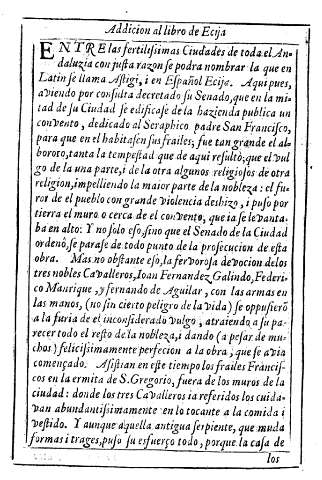 Addicion al libro de Ecija
ENTRE las fertilissimas Ciudades de toda el An-
daluzia con justa razon se podra nombrar la que en
Latin se llama Astigi, i en Español Ecija. Aqui pues,
aviendo por consulta decretado su Senado, que en la mi-
tad de su Ciudad se edificase de la hazienda publica un
convento, dedicado al Seraphico padre San Francisco,
para que en el habitasen sus frailes; fue tan grande el al-
boroto, tanta la tempestad que de aqui resultò; que el vul
go de la una parte, i de la otra algunos religiosos de otra
religion, impelliendo la maior parte de la nobleza: el fu-
ror de el pueblo con grande violencia deshizo, i puso por
tierra el muro o cerca de el convento, que ia se levanta-
ba en alto: Y no solo eso, sino que el Senado de la Ciudad
ordenò, se parase de todo punto de la prosecucion de esta
obra. Mas no obstante eso, la fervorosa devocion de los
tres nobles Cavalleros, Ioan Fernandez Galindo, Federi-
co Manrique, y fernando de Aguilar, con las armas en
las manos, (no sin cierto peligro de la vida) se oppusierõ
a la furia de el inconsiderado vulgo, atraiendo a su pa-
recer todo el resto de la nobleza, i dando (a pesar de mu-
chos) felicissimamente perfecion a la obra, que se avia
començado. Asistian en este tiempo los frailes Francis-
cos en la ermita de S. Gregorio, fuera de los muros de la
ciudad: donde los tres Cavalleros ia referidos los cuida-
van abundantissimamente en lo tocante a la comida i
vestido. Y aunque aquella antigua serpiente, que muda
formas i trages, puso su esfuerço todo, porque la casa de
los